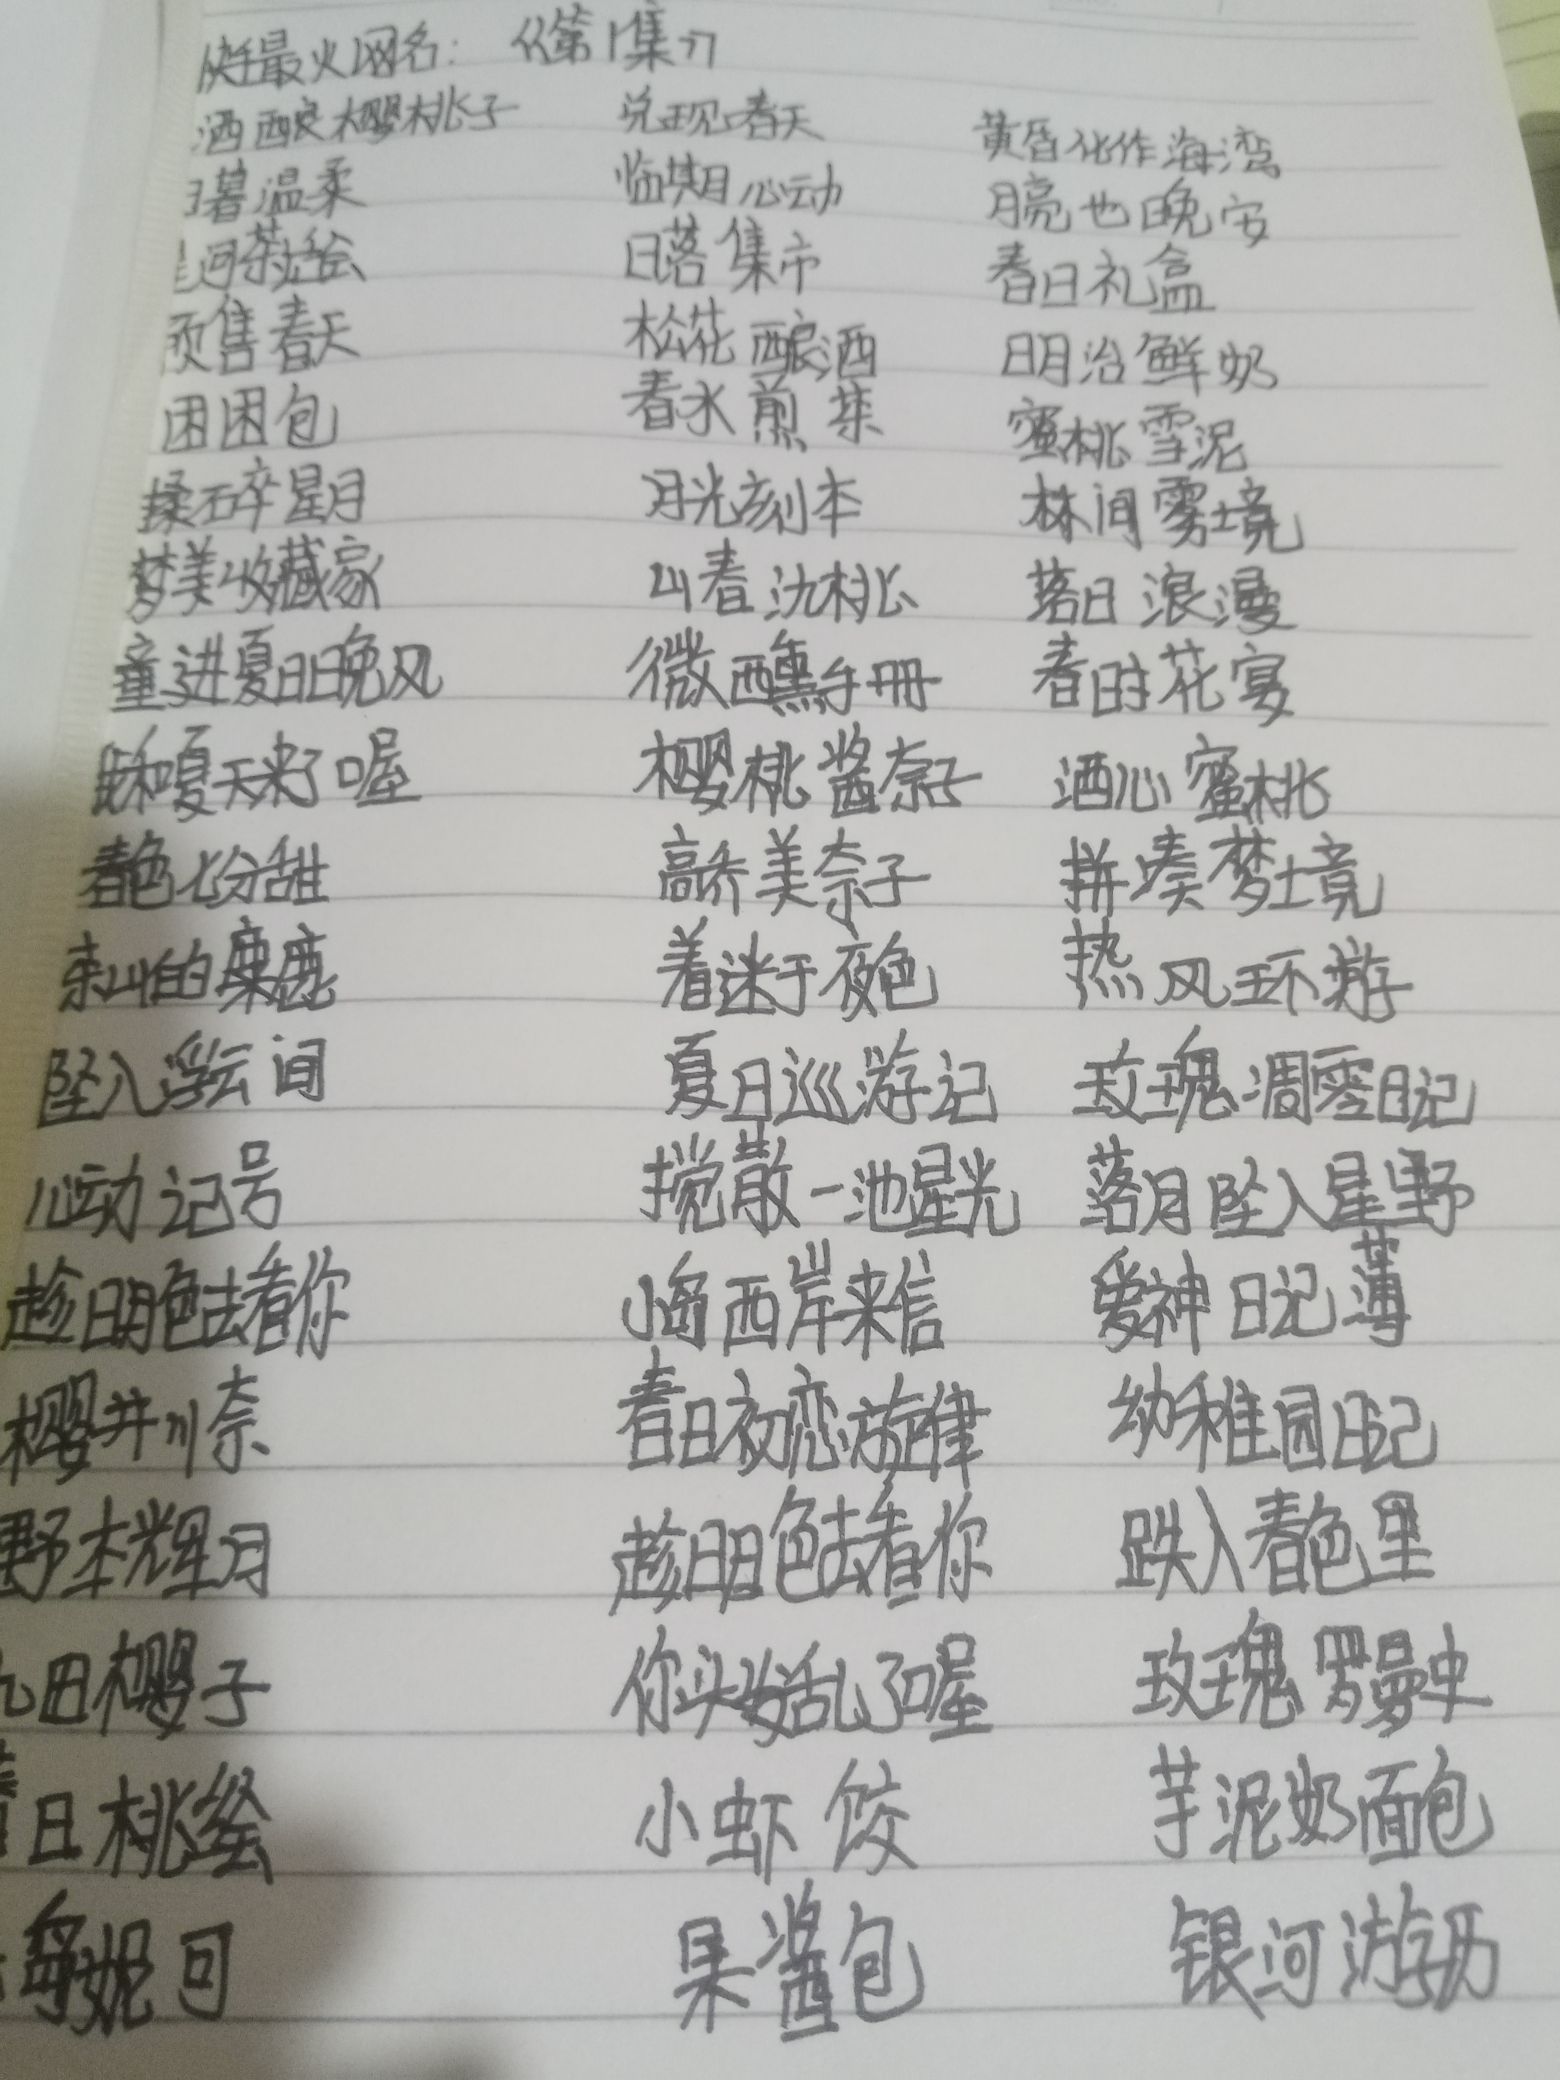 快手最火网名：《第1集》
洒酿樱桃子 兑现春天 黄昏化作海湾
日暮温柔 临期心动 月亮也晚安
星河茶话会 日落集市 春日礼盒
预售春天 松花酿洒 明治鲜奶
困困包 春水煎茶 蜜桃雪泥
揉碎星月 月光刻本 林间雾境
梦美收藏家 山春氿桃 落日浪漫
童进夏日晚风 微醺手册 春日时花宴
和夏天来了喔 樱桃酱奈子 洒心蜜桃
春色七分甜 高乔美奈子 拼凑梦境
东山的麋鹿 着迷于夜色 热风环游
坠入浮云间 夏日巡游记 玫瑰凋零日记
心动记号 搅散一池星光 落月坠入星野
趁月色去看你 小岛西岸来信 爱神日记薄
樱井川奈 春日初恋旋律 幼稚园日记
野本辉月 趁月色去看你 跌入春色里
九田樱子 你头发乱了喔 玫瑰罗曼史
日桃绘 小虾饺 芋泥奶面包
妮可 果酱包 银河游历